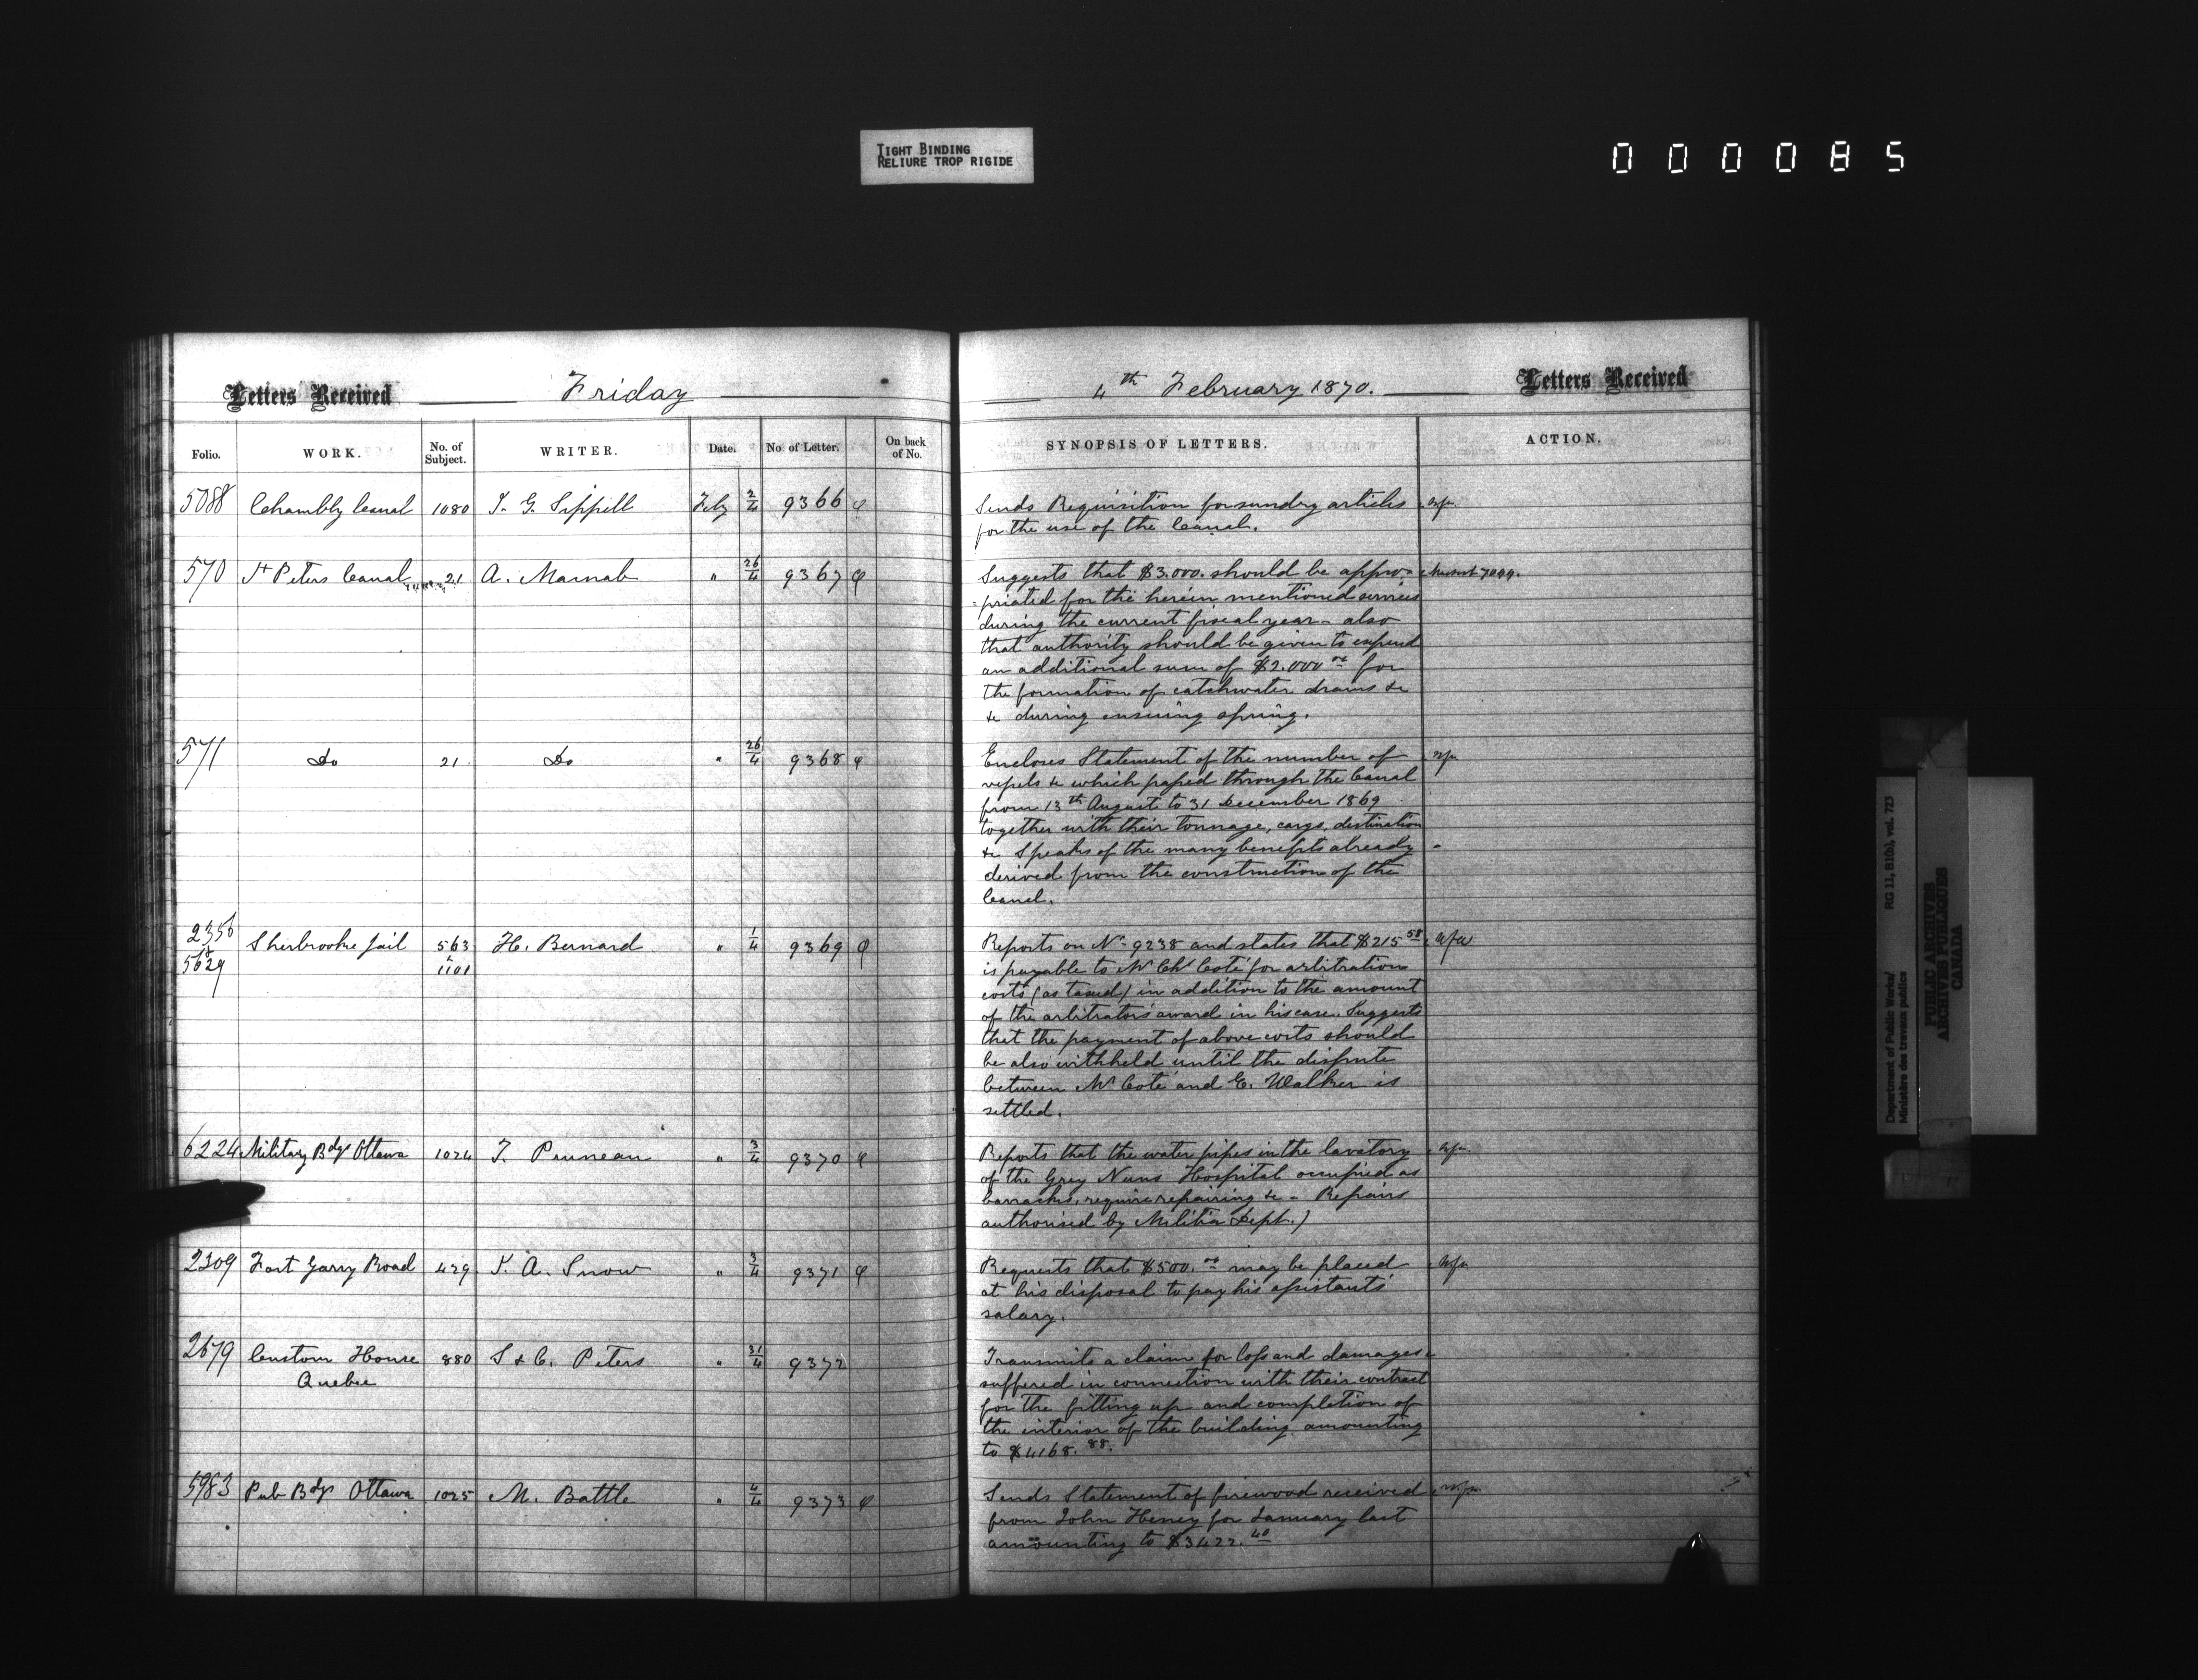 TIGHT BINDING
RELIURE TROP RIGIDE
000085
Letters Received Friday
Folio. WORK. No. of Subject. WRITER. Date. No. of Letter. On back of No.
5088 Chambly Canal 1080 J. G. Sippell Feby 2/4 9366
570 St Peters Canal 21 A. Macnab " 26/4 9367
571 Do 21 Do " 26/4 9368
2356 Sherbrooke Jail 563 H. Bernard " 1/4 9369
5629 & 1101
6224 Military Bdgs Ottawa 1024 T. Pruneau " 3/4 9370
2309 Fort Garry Road 429 J. A. Snow " 3/4 9371
2679 Custom House 880 S & C. Peters " 31/4 9372
Quebec
5983 Pub Bdgs Ottawa 1025 M. Battle " 4/4 9373
4th February 1870. Letters Received
SYNOPSIS OF LETTERS. ACTION.
Sends Requisition for sundry articles
for the use of the Canal.
Suggests that $3.000. should be appro-
=priated for the herein mentioned services
during the current fiscal year - also
that authority should be given to expend
an additional sum of $2.000 00 for
the formation of catchwater drains &c
&c during ensuing spring.
Encloses Statement of the number of
vessels &c which passed through the Canal
from 13th August to 31 December 1869
together with their tonnage, cargo, destination
&c Speaks of the many benefits already
derived from the construction of the
Canal.
Reports on No 9238 and states that $215 58
is payable to Mr Chs Coté for arbitration
costs (as taxed) in addition to the amount
of the arbitrators award in his case. Suggests
that the payment of above costs should
be also withheld until the dispute
between Mr Coté and E. Walker is
settled.
Reports that the water pipes in the lavatory
of the Grey Nuns Hospital occupied as
barracks, require repairing &c - Repairs
authorised by Militia Dept.)
Requests that $500. 00 may be placed
at his disposal to pay his assistants'
salary.
Transmits a claim for loss and damages
suffered in connection with their contract
for the fitting up and completion of
the interior of the building amounting
to $4168. 88.
Sends Statement of firewood received
from John Heney for January last
amounting to $3422. 40
Department of Public Works/
Ministère des travaux publics
RG 11, B1(b), vol. 723
PUBLIC ARCHIVES
ARCHIVES PUBLIQUES
CANADA